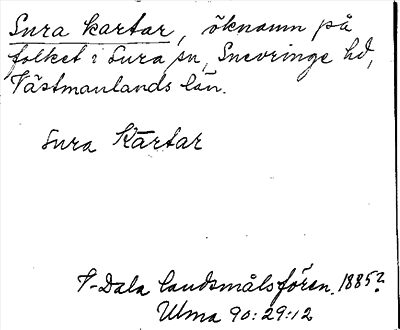 Sura kartar, öknamn på
folket i Sura sn, Snevringe hd,
Västmanlands län.
Sura Kartar
V-Dala landsmålsfören. 1885?
Ulma 90:29:12